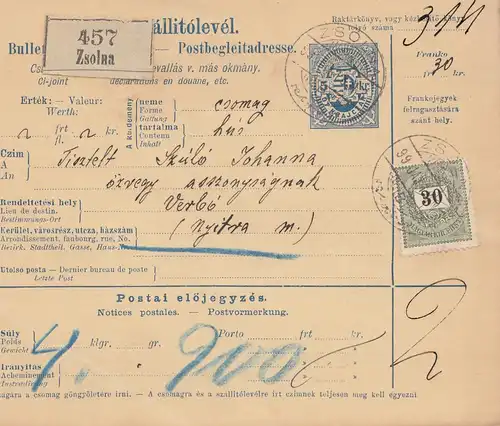 Szállitólevél.
Raktárkönyv, vagy kézbesitő könyv
folyó száma
457
Zsolna
Bulletin
Postbegleitadresse.
Franko
frt 30 kr.
ZSOLNA
5 kr
Cl-joint déclarations en douane, etc.
vallás v. más okmány.
Frankojegyek
felragasztására
szánt hely.
Érték: - Valeur:
Werth:
A küldemény
neme
Forme
Gattung
csomag
frt kr.
fl.
tartalma
Contenu
Inhalt
hús
Czim
A
An
Tisztelt Szúló Johanna
özvegy asszonyságnak
Rendeltetési hely
Lieu de destin.
Bestimmungs-Ort
Verbó
Kerület, városrész, utcza, házszám
Arrondissement, faubourg, rue, No.
Bezirk, Stadttheil, Gasse, Haus-
(Nyitra m.)
30
Utolso posta - Dernier bureau de poste
Letzte Post
Postai előjegyzés.
Notices postales. - Postvormerkung.
Súly
Poids
Gewicht
4. klgr. 900 gr.
Porto frt kr.
Irányitás
Acheminement
Instradirung
2
magára a csomag göngyöletére irni. A csomagra és a szállitólevélre irt czimnek teljesen meg kell egyezni